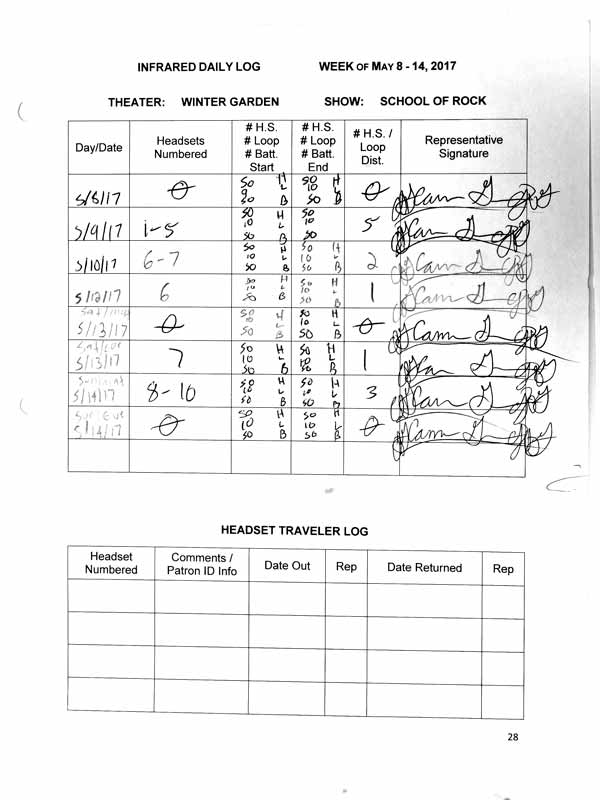 INFRARED DAILY LOG WEEK OF MAY 8 - 14, 2017
THEATER: WINTER GARDEN SHOW: SCHOOL OF ROCK
Day/Date Headsets Numbered # H.S. # Loop # Batt. Start # H.S. # Loop # Batt. End # H.S. / Loop Dist. Representative Signature
5/8/17 0 50 H 9 L 50 B 50 H 10 L 50 B 0
5/9/17 1-5 50 H 10 L 50 B 50 10 50 5
5/10/17 6-7 50 H 10 L 50 B 50 H 10 L 50 B 2
5/12/17 6 50 H 10 L 50 B 50 H 10 L 50 B 1
5/13/17 0 50 H 10 L 50 B 50 H 10 L 50 B 0
5/13/17 7 50 H 10 L 50 B 50 H 10 L 50 B 1
5/14/17 8-10 50 H 10 L 50 B 50 H 10 L 50 B 3
5/14/17 0 50 H 10 L 50 B 50 H 10 L 50 B 0
HEADSET TRAVELER LOG
Headset Numbered Comments / Patron ID Info Date Out Rep Date Returned Rep
28